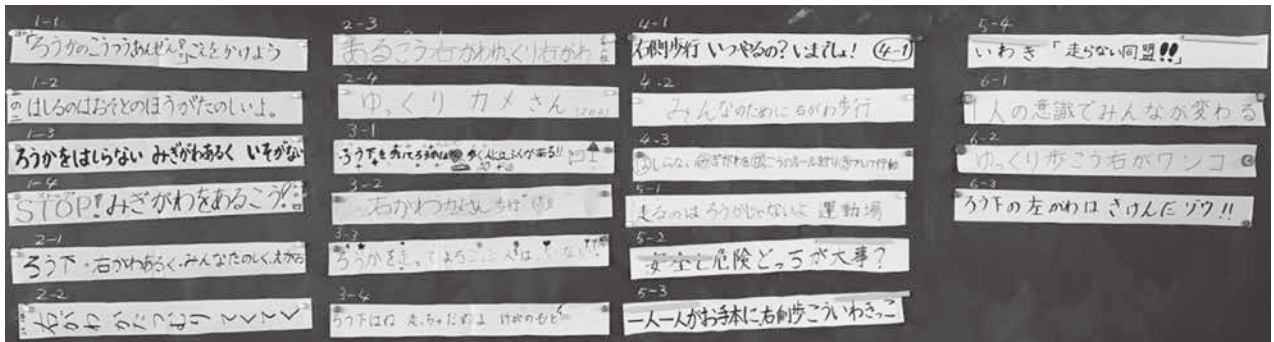 1-1
「ろうかのこうつうあんぜん!」こえをかけよう
1-2
はしるのはおそとのほうがたのしいよ。
1-3
ろうかをはしらない みぎがわあるく いそがない
1-4
STOP!みぎがわをあるこう!
2-1
ろう下・右がわあるく・みんなたのしく、えがお
2-2
右がわ かたつむり てくてく
2-3
あるこう右がわゆっくり右がわ
2-4
ゆっくり カメさん
3-1
ろう下を
3-2
右がわ
3-3
ろうかを走ってよろこぶ人は、いない!
3-4
ろう下はね 走っちゃだめよ けがのもと
4-1
右側歩行 いつやるの?いまでしょ! 4-1
4-2
みんなのために右がわ歩行
4-3
はしらない みぎがわを ルール守り
5-1
走るのは ろうかじゃないよ 運動場
5-2
安全と危険どっちが大事?
5-3
一人一人がお手本に、右側歩こういわきっこ
5-4
いわき「走らない同盟!!」
6-1
1人の意識でみんなが変わる
6-2
ゆっくり歩こう右がワンコ
6-3
ろう下の左がわは きけんだゾウ!!